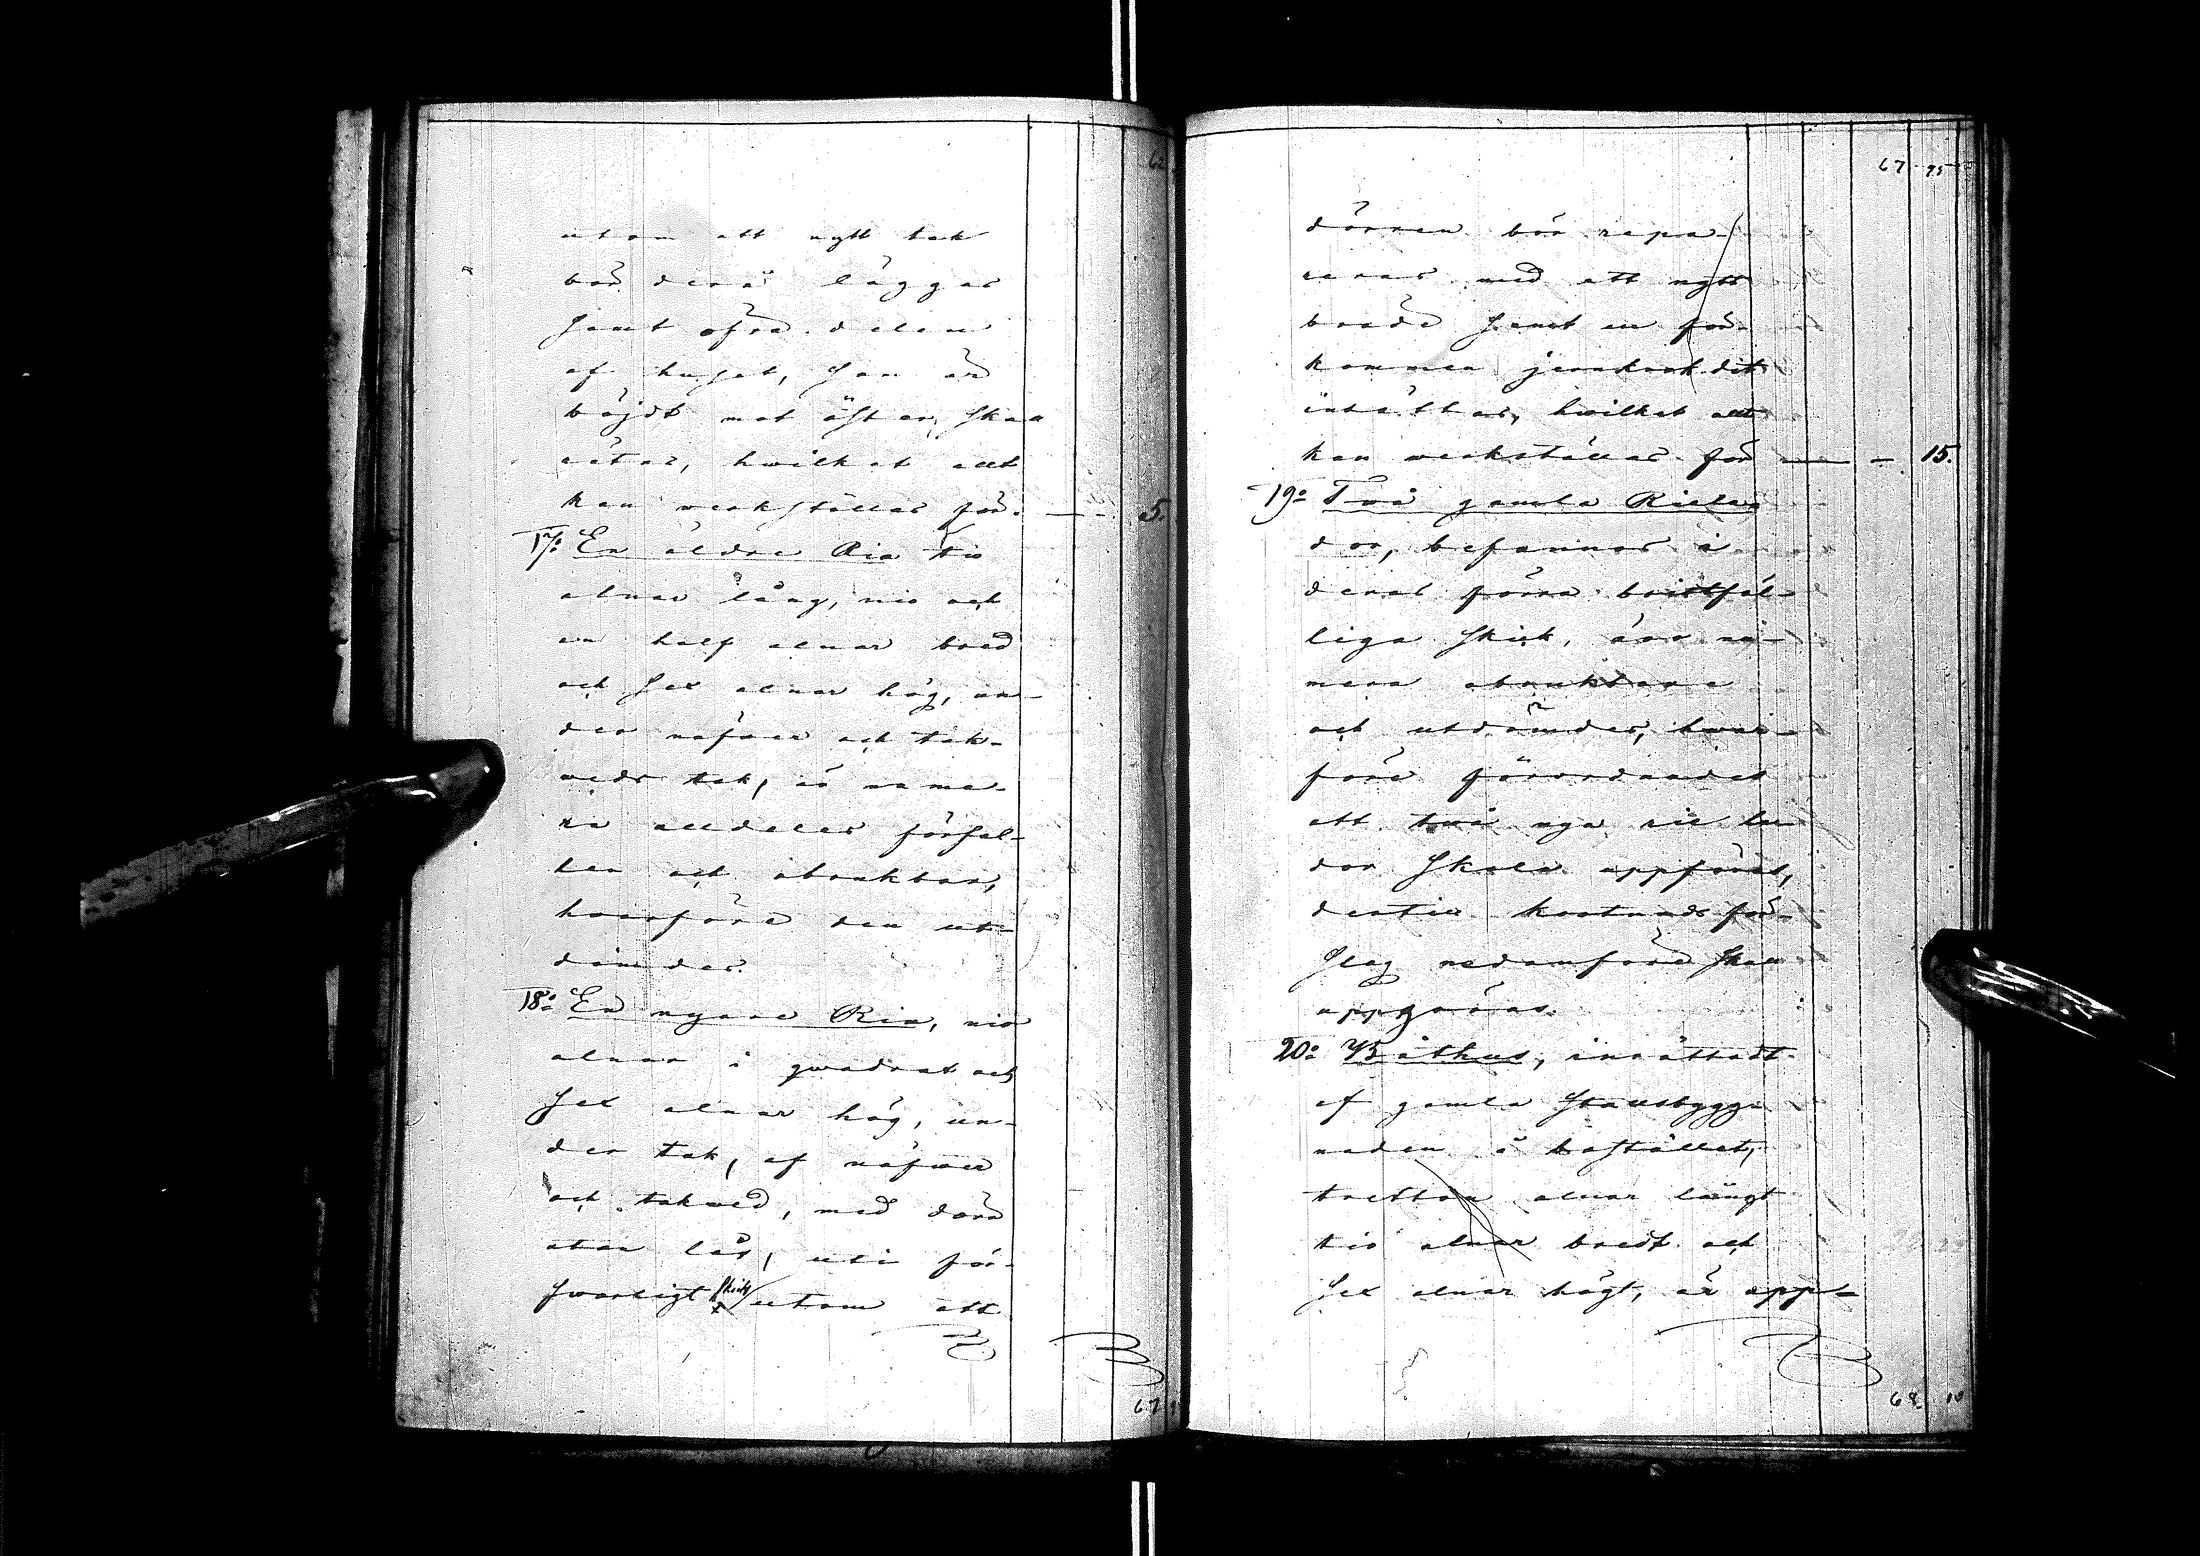 utom ett nytt tak
bör derå läggas
samt öfra delen
af huset, som är
böjdt mot öster, ska
rätas, hwilket allt
kan werkställas för. — 5.
17:o En äldre Ria tio
alnar lång, nio och
en half alnar bred
och sex alnar hög, un-
der näfwer och tak-
weds tak, är nume-
ra alldeles förfal-
len och obrukbar,
hwarföre den ut-
dömdes.
18:o En nyare Ria, nio
alnar i qwadrat och
sex alnar hög, un-
der tak, af näfwer
och takwed, med dörr
utan lås, uti för-
swarligt skick utom att
67
67 95
dörren bör repa-
reras med ett nytt
bräde samt en för-
kommen jernkrok dit
insättas, hwilket allt
kan werkställas för — 15.
19:o Två gamla Riela-
dor, befunnos i
deras förra bristfäl-
liga skick, äro nu-
mera obrukbara
och utdömdes, hwar-
före förordnades
att två nya rie la-
dor skola uppföras,
dertill kostnads för-
slag nedanföre skall
uppgöras.
20:o Båthus, inrättadt
af gamla Stallsbygg-
naden å bostället,
tretton alnar långt
tio alnar bredt och
sex alnar högt, är uppt-
68 10